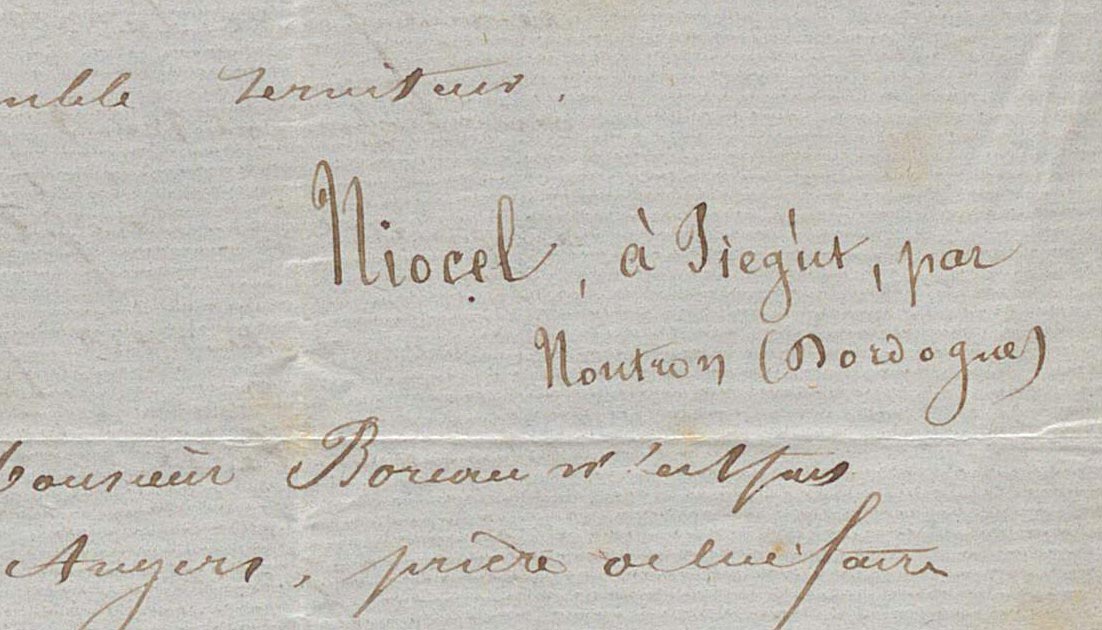 mble serviteur.
Niocel, à Piégut, par
Nontron (Dordogne)
Monsieur Boreau n'est pas
Angers, prière de lui faire